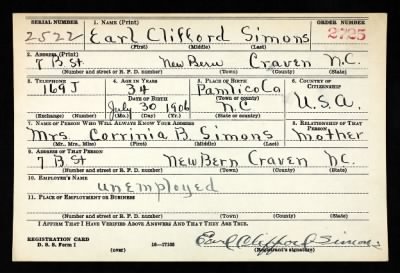 SERIAL NUMBER 1. NAME (Print) ORDER NUMBER
2522 Earl Clifford Simons 2725
(First) (Middle) (Last)
2. ADDRESS (Print)
7 B St New Bern Craven N.C.
(Number and street or R. F. D. number) (Town) (County) (State)
3. TELEPHONE 4. AGE IN YEARS 5. PLACE OF BIRTH 6. COUNTRY OF CITIZENSHIP
169J 34 Pamlico Co
DATE OF BIRTH (Town or county)
July 30 1906 N.C. U.S.A.
(Exchange) (Number) (Mo.) (Day) (Yr.) (State or country)
7. NAME OF PERSON WHO WILL ALWAYS KNOW YOUR ADDRESS 8. RELATIONSHIP OF THAT PERSON
Mrs Corrinia B. Simons Mother
(Mr., Mrs., Miss) (First) (Middle) (Last)
9. ADDRESS OF THAT PERSON
7 B. St New Bern Craven N.C.
(Number and street or R. F. D. number) (Town) (County) (State)
10. EMPLOYER'S NAME
unemployed
11. PLACE OF EMPLOYMENT OR BUSINESS
(Number and street or R. F. D. number) (Town) (County) (State)
I AFFIRM THAT I HAVE VERIFIED ABOVE ANSWERS AND THAT THEY ARE TRUE.
REGISTRATION CARD
D. S. S. Form 1 (over) 16—17105 Earl Clifford Simons.
(Registrant's signature)